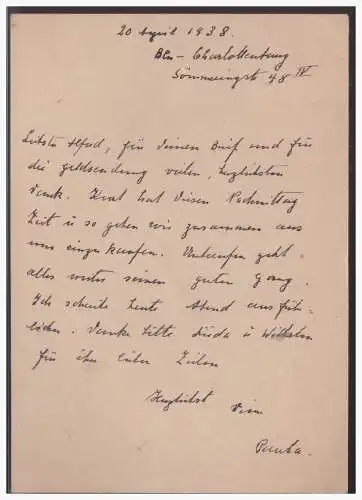 20 April 1938.
Bln - Charlottenburg
Sömmeringst 48 IV
Liebster Alfred, für Deinen Brief und für
die Geldsendung vielen, herzlichsten
Dank. hat diesen Nachmittag
Zeit u so gehen wir zusammen aus
uns einzukaufen. geht
alles weiter seinen guten Gang.
Ich schreibe heute Abend ausführ-
licher. Danke bitte u Wilhelm
für ihre lieben Zeilen
Herzlichst
Deine